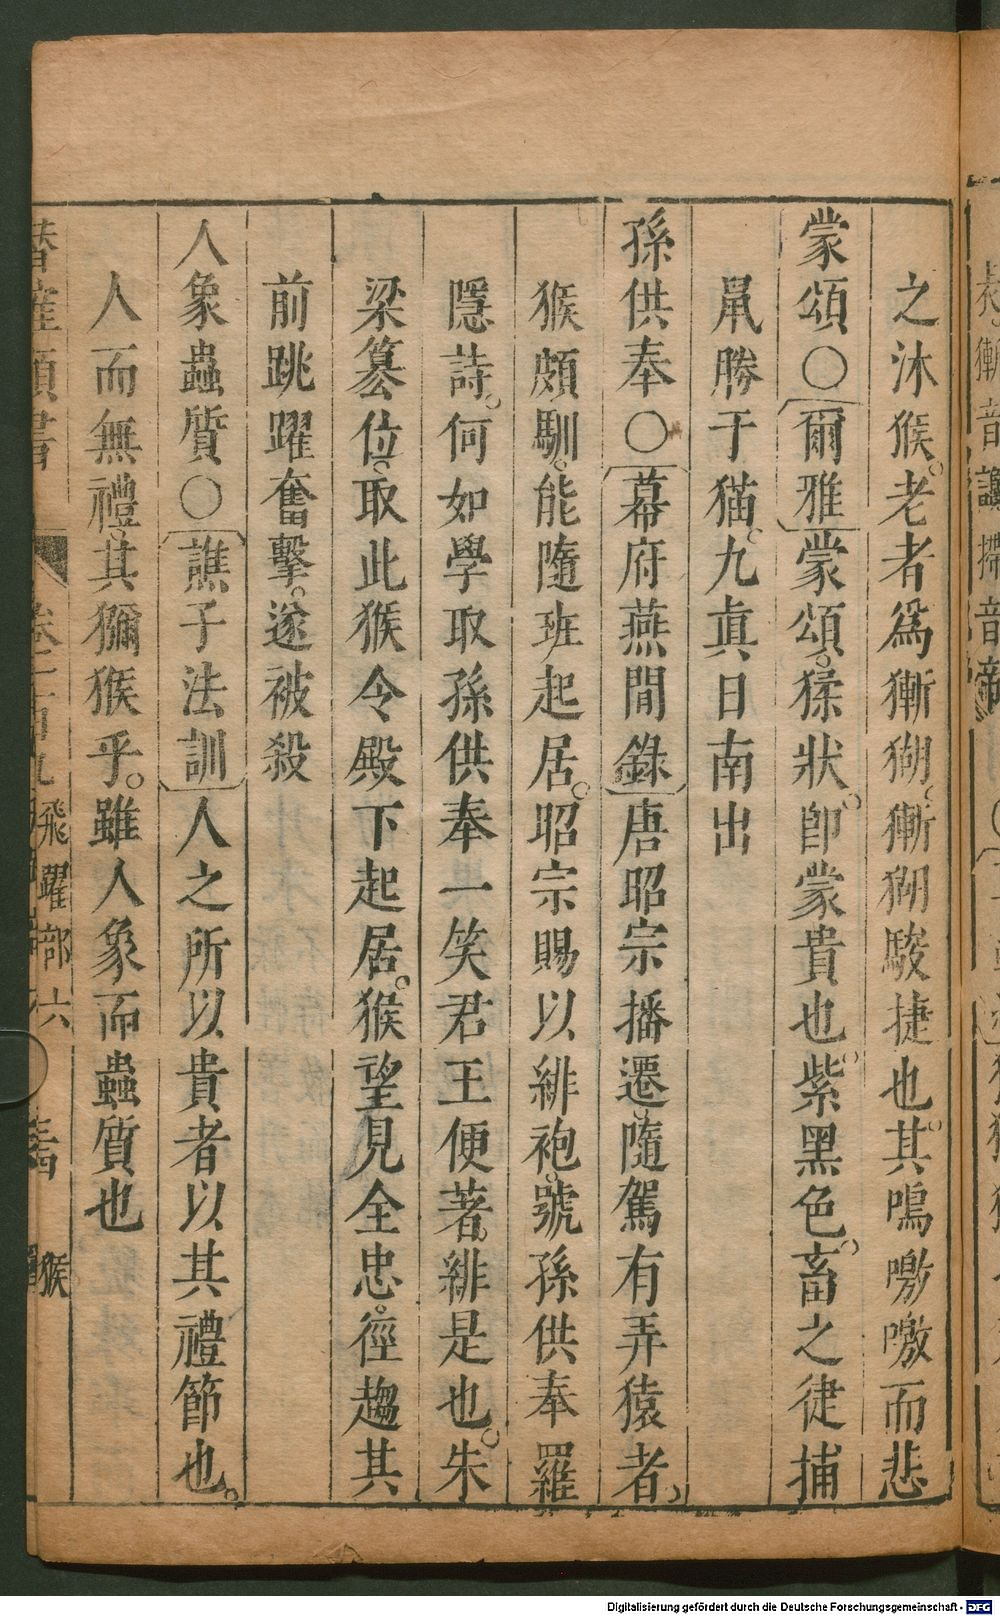 之沐猴。老者爲獑猢。獑猢駿捷也。其鳴噭噭而悲
蒙頌〇〔爾雅〕蒙頌。猱狀。卽蒙貴也。紫黑色。畜之徤捕
鼠勝于猫。九眞日南出
孫供奉〇〔幕府燕閒錄〕唐昭宗播遷。隨駕有弄猿者。
猴頗馴。能隨班起居。昭宗賜以緋袍。號孫供奉羅
隱詩。何如學取孫供奉一笑君王便著。緋是也。朱
梁簒位。取此猴令殿下起居。猴望見全忠。徑趨其
前跳躍奮擊。遂被殺
人象蟲質〇〔譙子法訓〕人之所以貴者以其禮節也。
人而無禮。其獼猴乎。雖人象而蟲質也
潛確類書
卷一百九 飛躍部六 猴
Digitalisierung gefördert durch die Deutsche Forschungsgemeinschaft - DFG